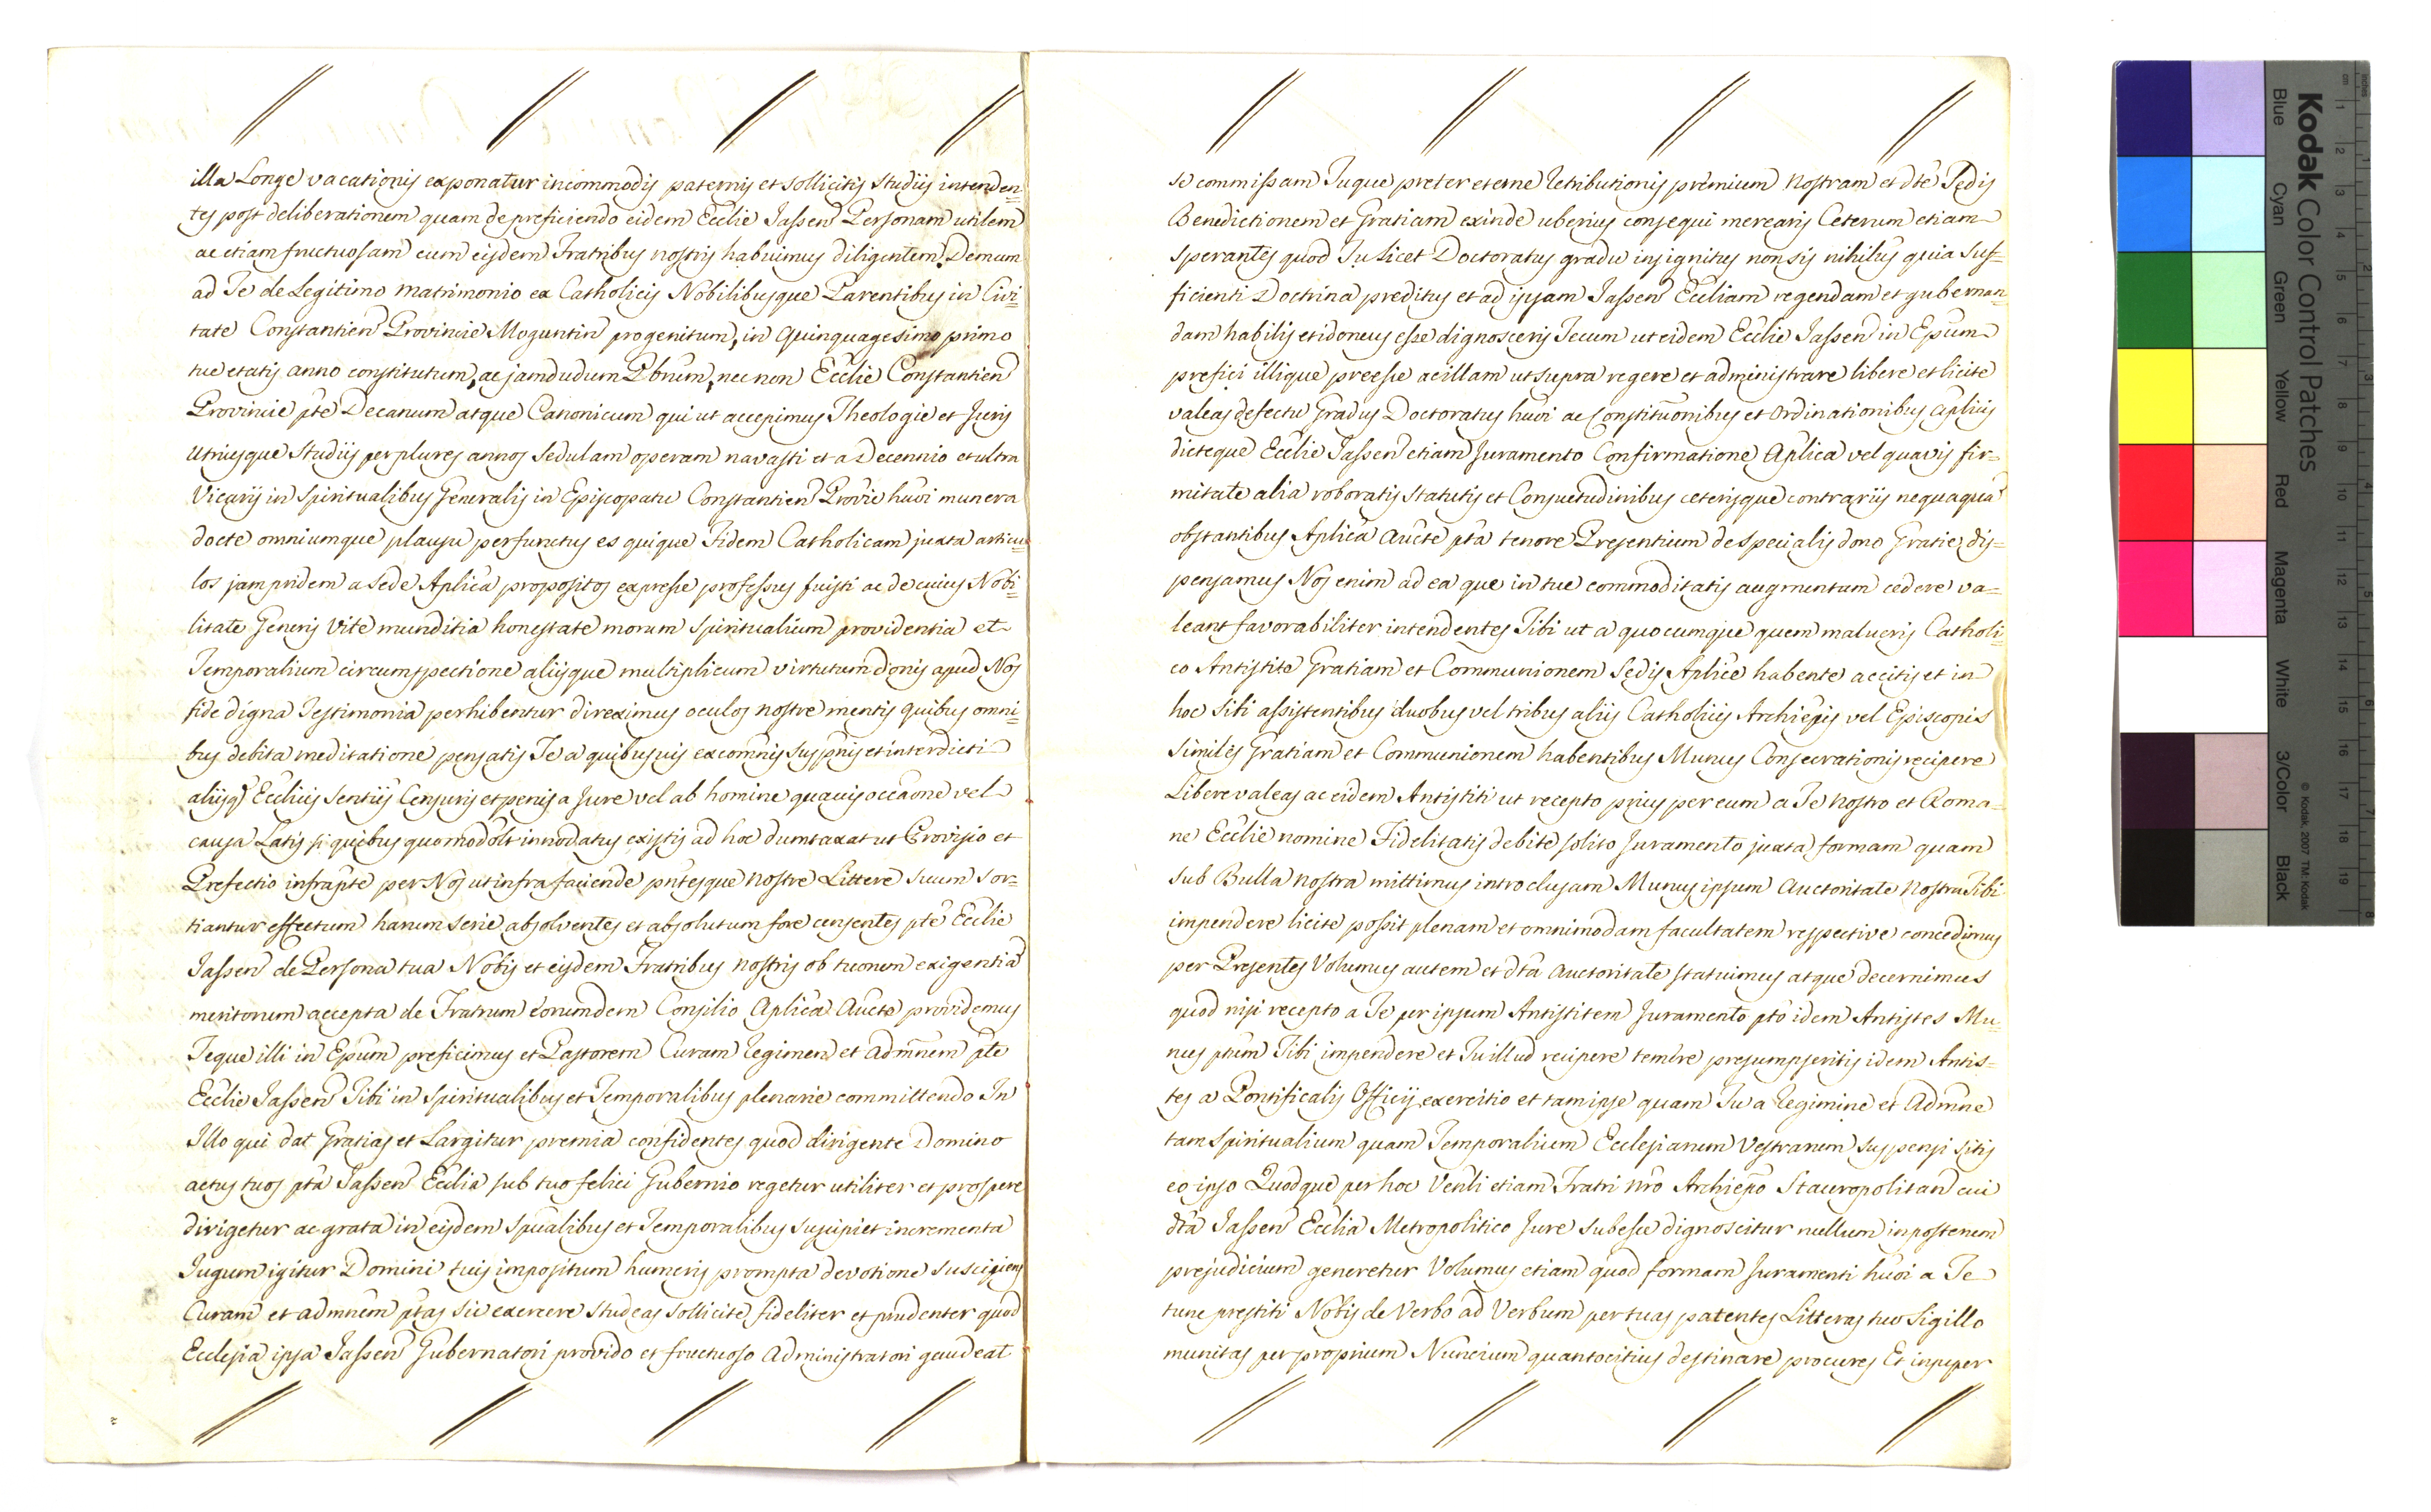 illa Longe vacationis exponatur incommodis paternis et sollicitis Studiis intenden=
tes post deliberationem quam de preficiendo eidem Ecclie Jassen Personam utilem
ac etiam fructuosam cum eisdem Fratribus nostris habuimus diligentem. Demum
ad Te de Legitimo matrimonio ex Catholicis Nobilibusque Parentibus in Civi=
tate Constantien Provincie Moguntin progenitum, in quinquagesimo primo
tue etatis anno constitutum, ac jamdudum Pbrum, nec non Ecclie Constantien
Provincie pte Decanum atque Canonicum qui ut accepimus Theologie et Juris
utriusque Studiis per plures annos sedulam operam navasti et a Decennio et ultra
Vicarij in Spiritualibus Generalis in Episcopatu Constantien Provie huoi munera
docte omniumque plausu perfunctus es quique Fidem Catholicam juxta articu
los jam pridem a Sede Aplica propositos expresse professus fuisti ac de cuius Nobi=
litate Generis Vite munditia honestate morum Spiritualium providentia et
Temporalium circumspectione aliisque multiplicum virtutum donis apud Nos
fide digna Testimonia perhibentur direximus oculos nostre mentis quibus omni=
bus debita meditatione pensatis Te a quibusuis excomnis suspnis et interdicti
aliisq Ecclicis Sentiis Censuris et penis a Jure vel ab homine quauis occaone vel
causa Latis si quibus quomodolt innodatus existis ad hoc dumtaxat ut Provisio et
Prefectio infrapte per Nos ut infra faciende pntesque nostre Littere suum sor=
tiantur effectum harum serie absolventes et absolutum fore censentes pte Ecclie
Jassen de Persona tua Nobis et eisdem Fratribus nostris ob tuorum exigentia
meritorum accepta de Fratrum eorumdem Consilio Aplica Aucte providemus
Teque illi in Epum preficimus et Pastorem Curam Regimen et Admnem pte
Ecclie Jassen Tibi in Spiritualibus et Temporalibus plenarie committendo In
Illo qui dat Gratias et Largitur premia confidentes quod dirigente Domino
actus tuos pta Jassen Ecclia sub tuo felici Gubernio regetur utiliter et prospere
dirigetur ac grata in eisdem Spualibus et Temporalibus suscipiet incrementa
Jugum igitur Domini tuis impositum humeris prompta devotione suscipiens
Curam et admnem ptas sic exercere studeas sollicite, fideliter et prudenter quod
Ecclesia ipsa Jassen Gubernatori provido et fructuoso Administratori gaudeat
se commissam Tuque preter eterne Retributionis premium Nostram et dte Sedis
Benedictionem et Gratiam exinde uberius consequi merearis Ceterum etiam
sperantes quod Tu Licet Doctoratus gradu insignitus non sis nihilus quia suf=
ficienti Doctrina preditus et ad ipsam Jassen Eccliam regendam et gubernan
dam habilis et idoneus esse dignosceris Tecum ut eidem Ecclie Jassen in Epum
prefici illique preesse ac illam ut supra regere et administrare libere et licite
valeas defectu Gradus Doctoratus huoi ac Constituonibus et Ordinationibus Aplicis
dicteque Ecclie Jassen etiam Juramento Confirmatione Aplica vel quavis fir=
mitate alia roboratis statutis et Consuetudinibus ceterisque contrariis nequaqua
obstantibus Aplica Aucte pta tenore Presentium de specialis dono Gratie dis=
pensamus Nos enim ad ea que in tue commoditatis augmentum cedere va=
leant favorabiliter intendentes Tibi ut a quocumque quem malueris Catholi=
co Antistite Gratiam et Communionem Sedis Aplice habente accitis et in
hoc Sibi assistentibus duobus vel tribus aliis Catholicis Archiepis vel Episcopis
similes Gratiam et Communionem habentibus Munus Consecrationis recipere
Libere valeas ac eidem Antistiti ut recepto prius per eum a Te nostro et Roma=
ne Ecclie nomine Fidelitatis debite solito Juramento juxta formam quam
sub Bulla nostra mittimus introclusam Munus ipsum Auctoritate Nostra Tibi
impendere licite possit plenam et omnimodam facultatem respective concedimus
per Presentes Volumus autem et dta Auctoritate statuimus atque decernimus
quod nisi recepto a Te per ipsum Antistitem Juramento pto idem Antistes Mu=
nus ptum Tibi impendere et Tu illud recipere temere presumpseritis idem Antis=
tes a Pontificalis Officij exercitio et tam ipse quam Tu a Regimine et Admne
tam Spiritualium quam Temporalium Ecclesiarum Vestrarum suspensi sitis
eo ipso Quodque per hoc Venli etiam Fratri nro Archiepo Stauropolitan cui
dta Jassen Ecclia Metropolitico Jure subesse dignoscitur nullum in posterum
prejudicium generetur Volumus etiam quod formam Juramenti huoi a Te
tunc prestiti Nobis de Verbo ad Verbum per tuas patentes Litteras tuo Sigillo
munitas per proprium Nuncium quantocitius destinare procures Et insuper
Kodak Color Control Patches
Blue Cyan Green Yellow Red Magenta White 3/Color Black
© Kodak, 2007 TM: Kodak
cm 1 2 3 4 5 6 7 8 9 10 11 12 13 14 15 16 17 18 19
inches 1 2 3 4 5 6 7 8